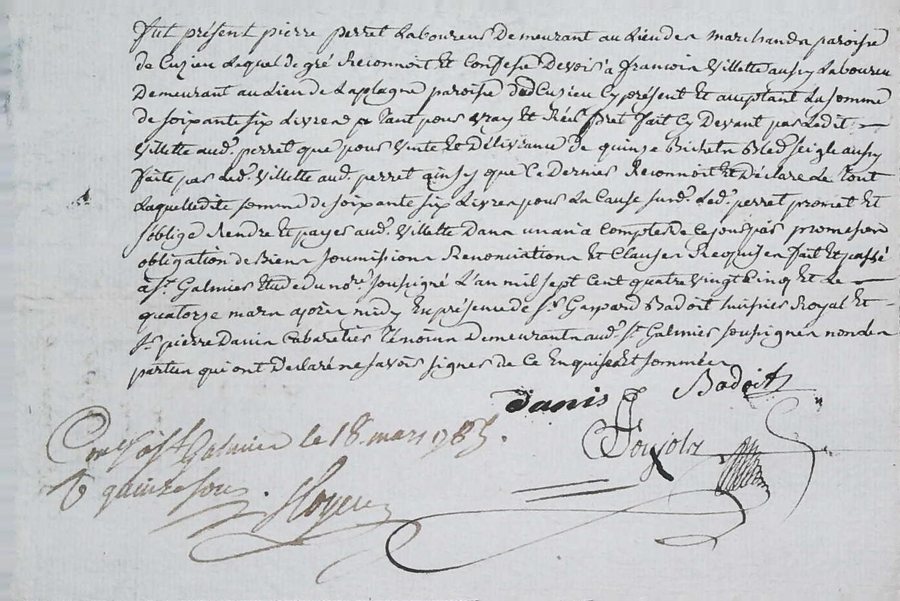 fut présent pierre perret Laboureur Demeurant au Lieu des marchands paroisse
de Cuzieu Lequel de gré Reconnoit et Confesse Devoir à francois Villette aussy Laboureur
Demeurant au Lieu de Laplagne paroisse dud Cuzieu Cy présent et aceptant La somme
de soixante six Livres p tant pour vray et Réel pret fait Cy Devant par Ledit
Villette aud. perret que pour vente et Délivrance de quinze Bichets Bled seigle aussy
faite par Led. Villette aud. perret ainsy que Ce Dernier Reconnoit et Déclare Le tout
Laquelle dite somme de soixante six Livres pour La Cause susd. Led. perret promet et
s'oblige Rendre et payer aud. Villette Dans un an a Compter de Ce jour par promesse
obligation de Biens soumissions Renonciations et Clauses Requises fait et passé
a St. Galmier Etude du nore. soussigné L'an mil sept Cent quatre vingt Cinq et Le
quatorze mars après midy En présence de Sr. Gaspard Badoit huissier Royal et
Sr. pierre Danis Cabaretier témoins Demeurant aud. St. Galmier soussignés non des
parties qui ont Déclaré ne savoir signer de Ce Enquises et sommées
Danis Badoit
Poujols
Conlé a St Galmier le 18. mars 1785.
quinze sous.